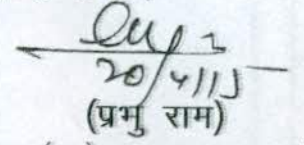 20/4/15
(प्रभु राम)